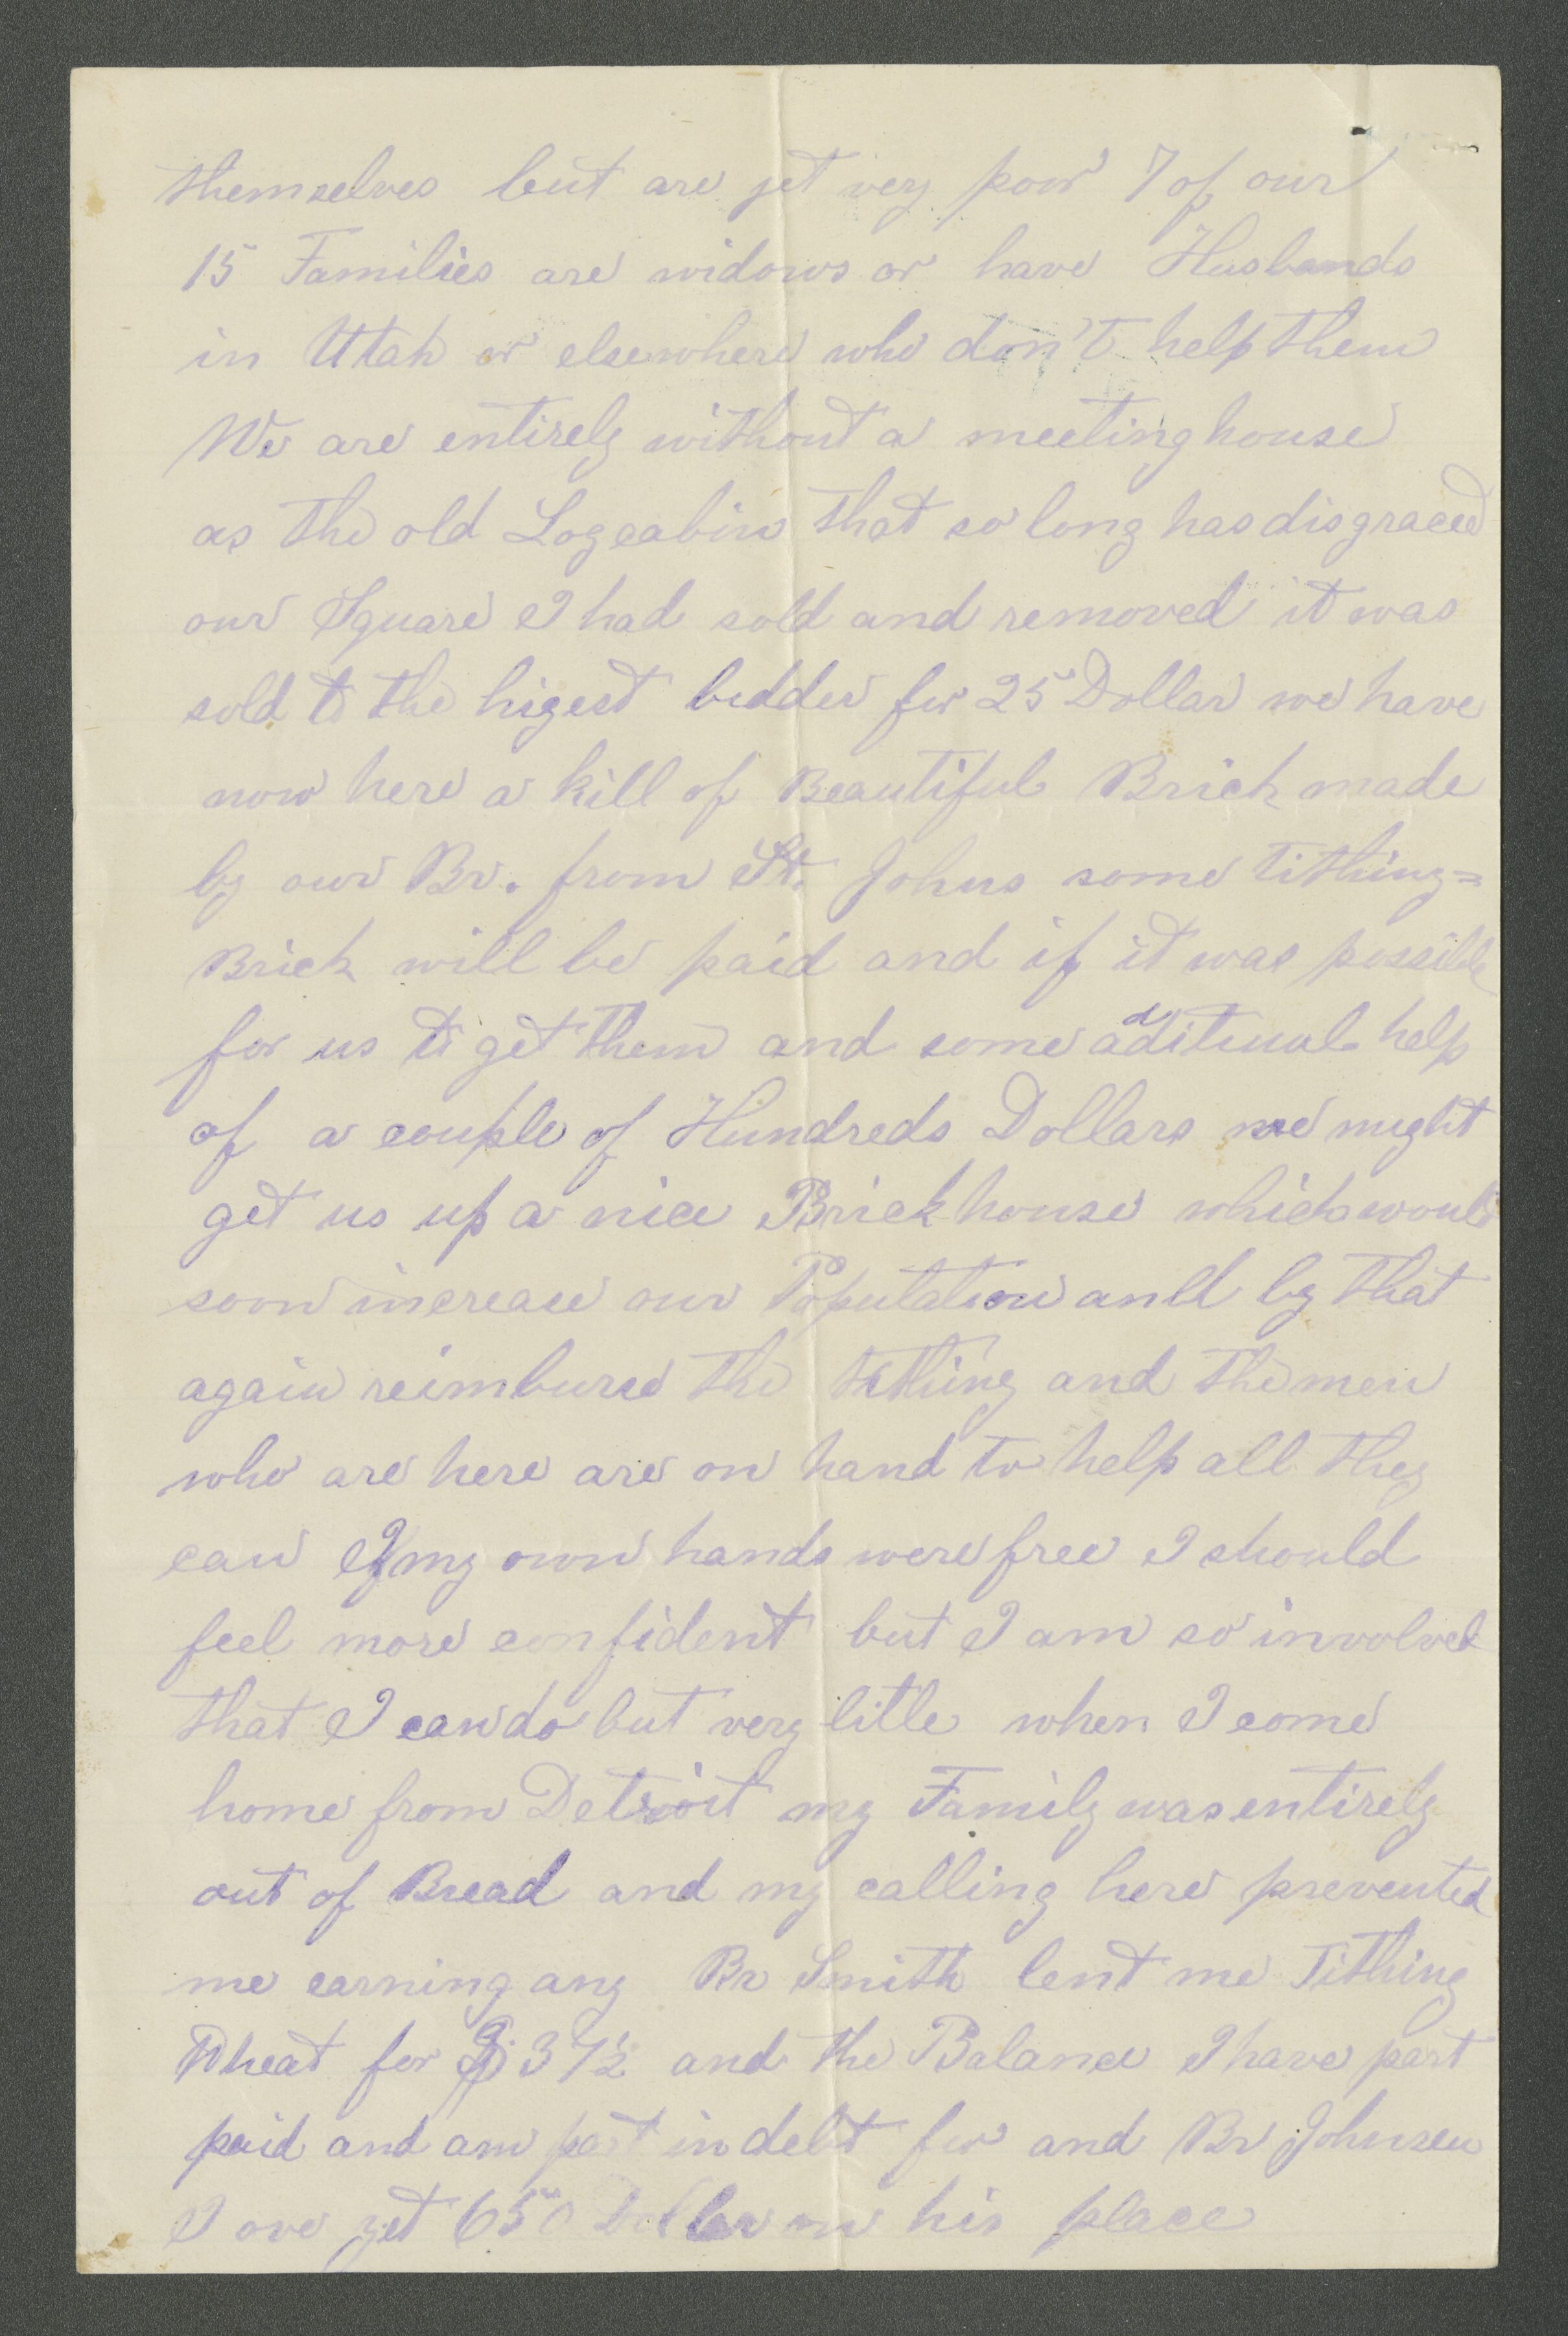 themselves but are yet very poor 7 of our
15 Families are widows or have Husbands
in Utah or elsewhere who don't help them
We are entirely without a meeting house
as the old Logcabin that so long has disgraced
our Square I had sold and removed it was
sold to the higest bidder for 25 Dollar we have
now here a kill of Beautiful Brick made
by our Br. from St. Johns some tithing=
Brick will be paid and if it was possible
for us to get them and some additinal help
of a couple of Hundreds Dollars we might
get us up a nice Brick house which would
soon increase our Population and by that
again reimburse the tithing and the men
who are here are on hand to help all they
can If my own hands were free I should
feel more confident but I am so involved
that I can do but very litle when I come
home from Detroit my Family was entirely
out of Bread and my calling here prevented
me earning any Br Smith lent me Tithing
Wheat for $ 37½ and the Balance I have part
paid and am part in debt for and Br Johnsen
I owe yet 650 Dollar on his place